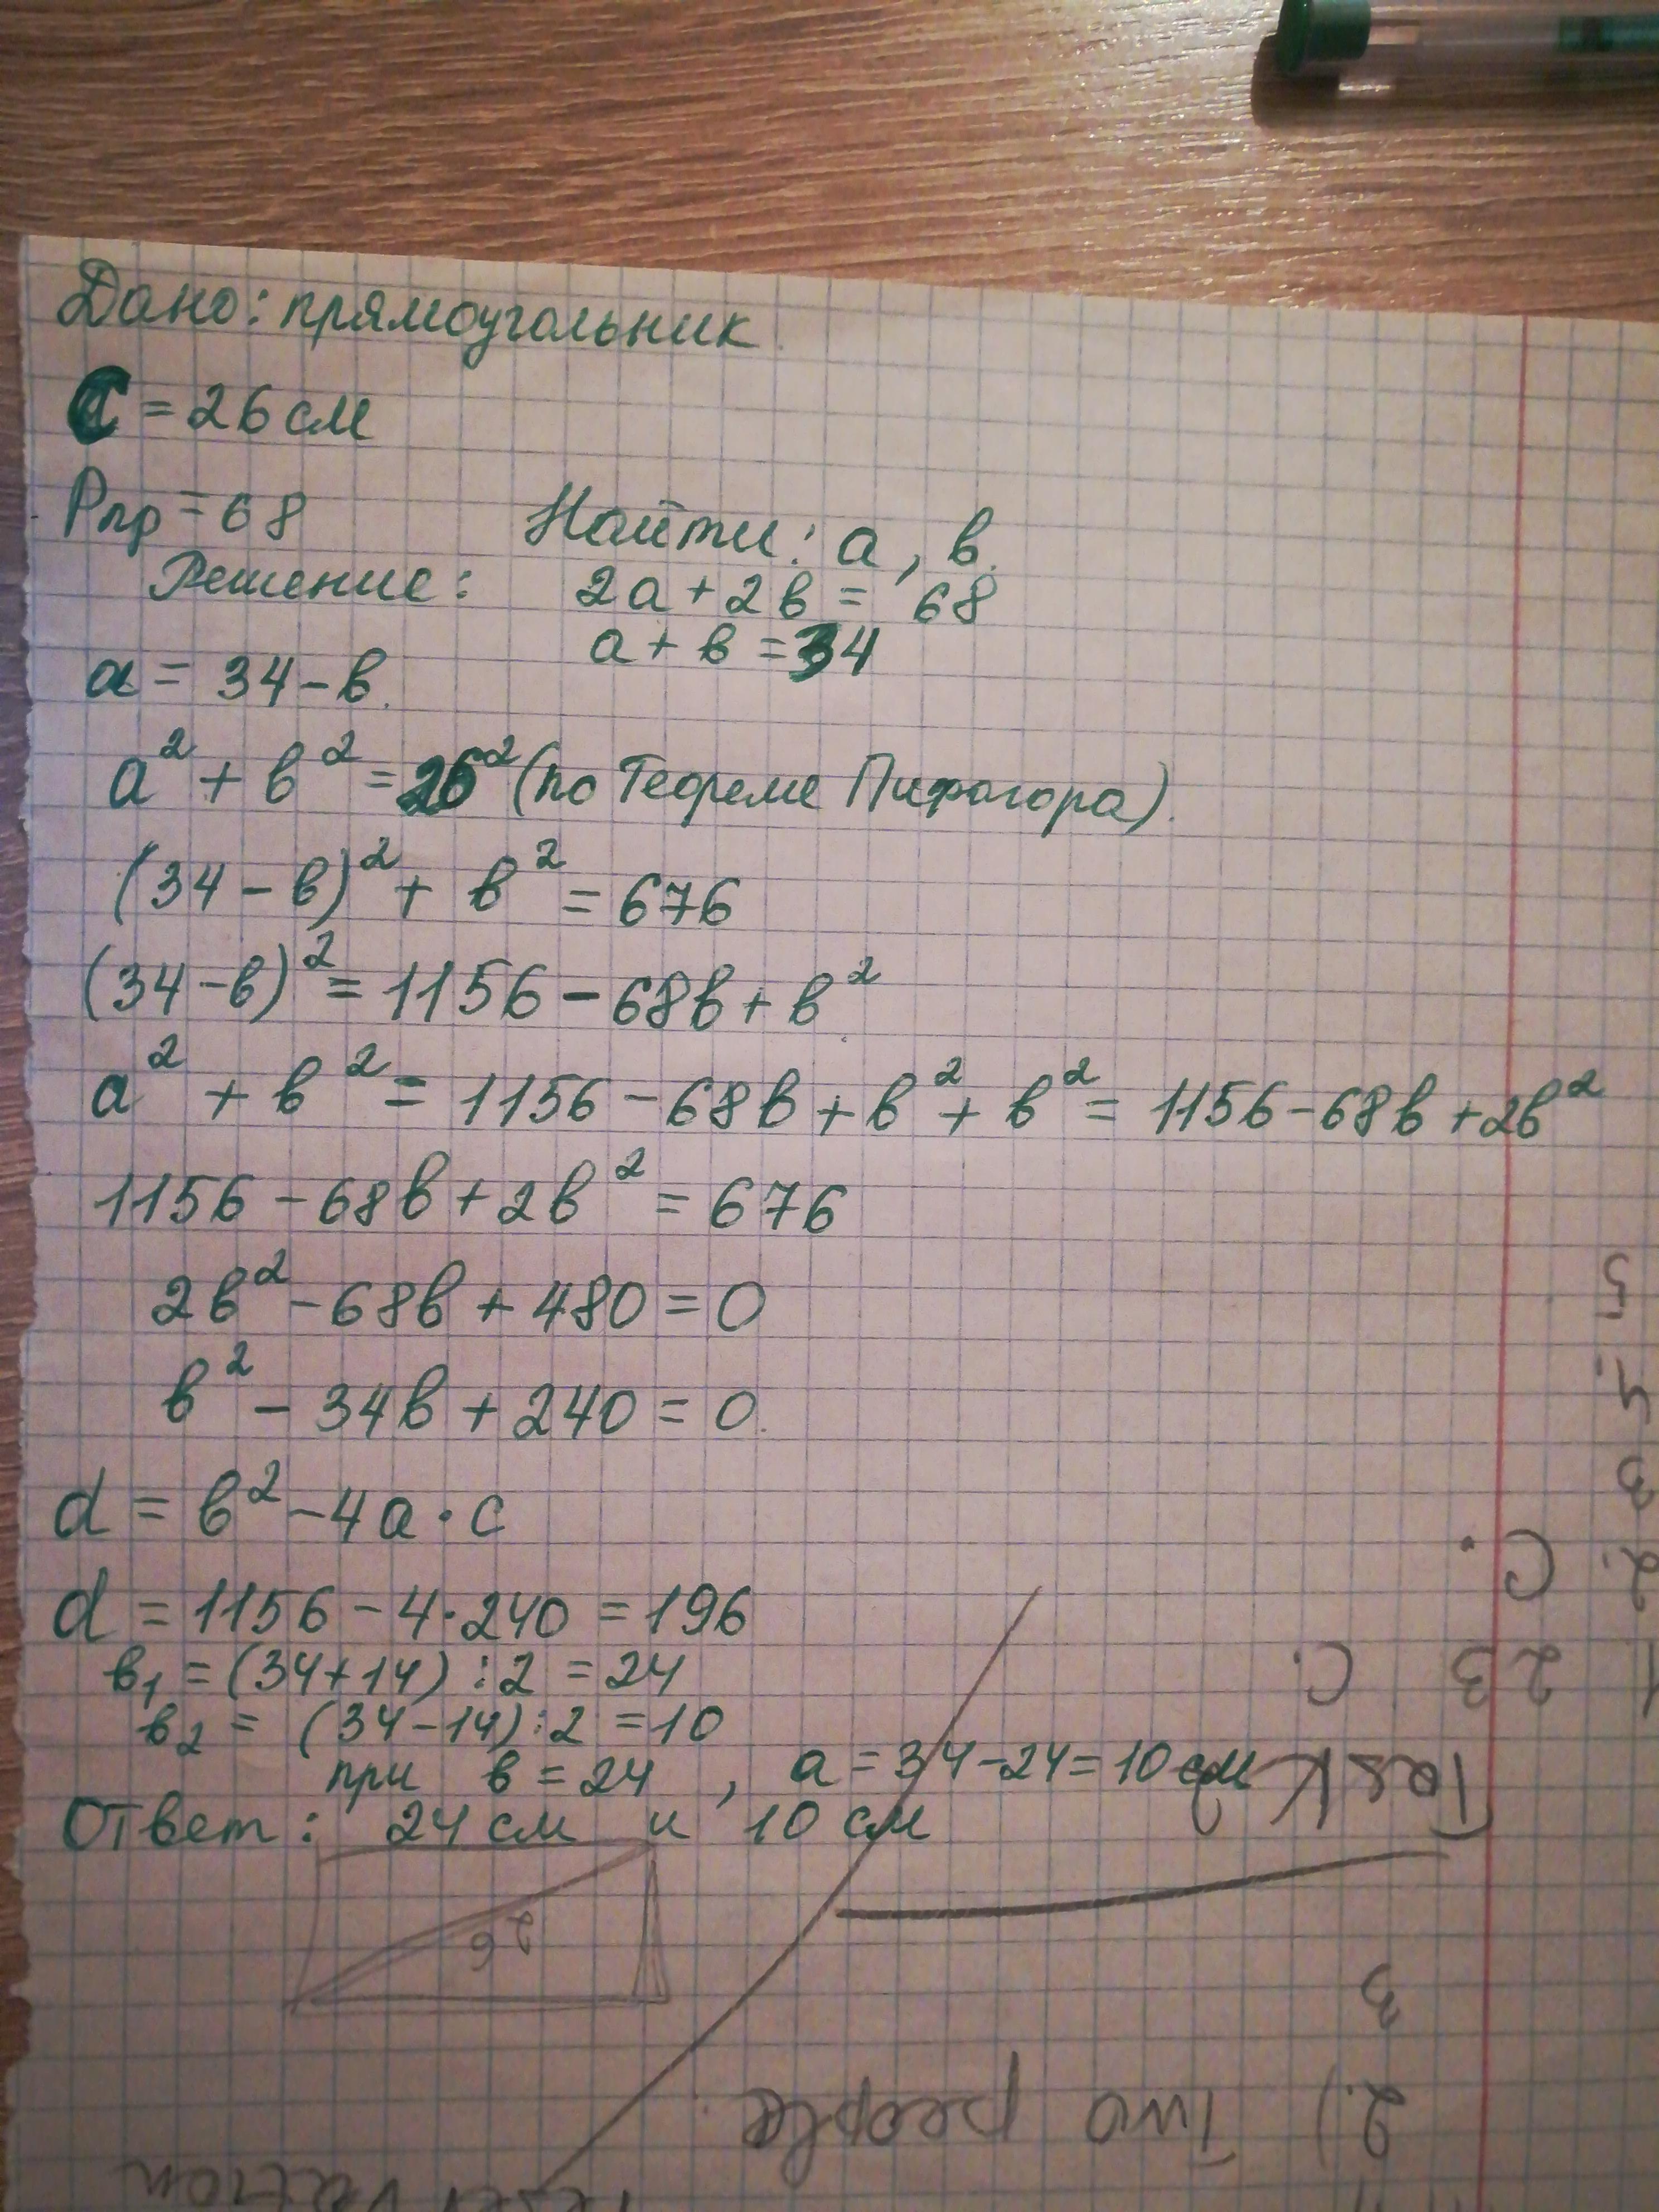 Дано: прямоугольник.
C = 26 см
Pпр = 68
Найти: а, в.
Решение: 2а + 2в = 68
а + в = 34
а = 34 - в.
а² + в² = 26² (по Теореме Пифагора).
(34 - в)² + в² = 676
(34 - в)² = 1156 - 68в + в²
а² + в² = 1156 - 68в + в² + в² = 1156 - 68в + 2в²
1156 - 68в + 2в² = 676
2в² - 68в + 480 = 0
в² - 34в + 240 = 0.
d = в² - 4а · с
d = 1156 - 4 · 240 = 196
в₁ = (34 + 14) : 2 = 24
в₂ = (34 - 14) : 2 = 10
при в = 24, а = 34 - 24 = 10 см
Ответ: 24 см и 10 см
26
2) Two people.
3
Task
1 23 C.
2. C.
3
4.
5